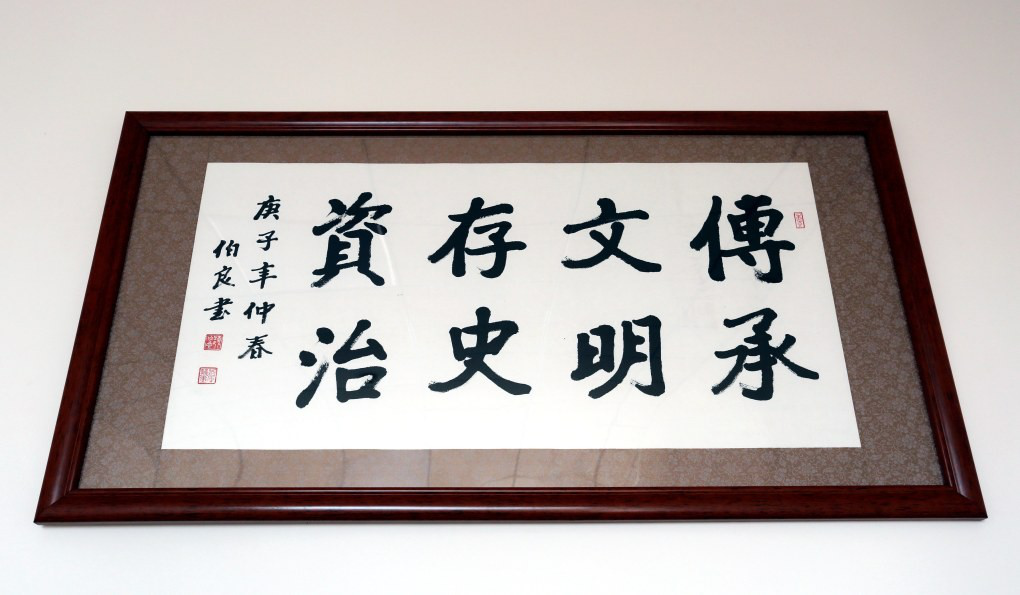 傳承
文明
存史
資治
庚子年仲春
伯良书